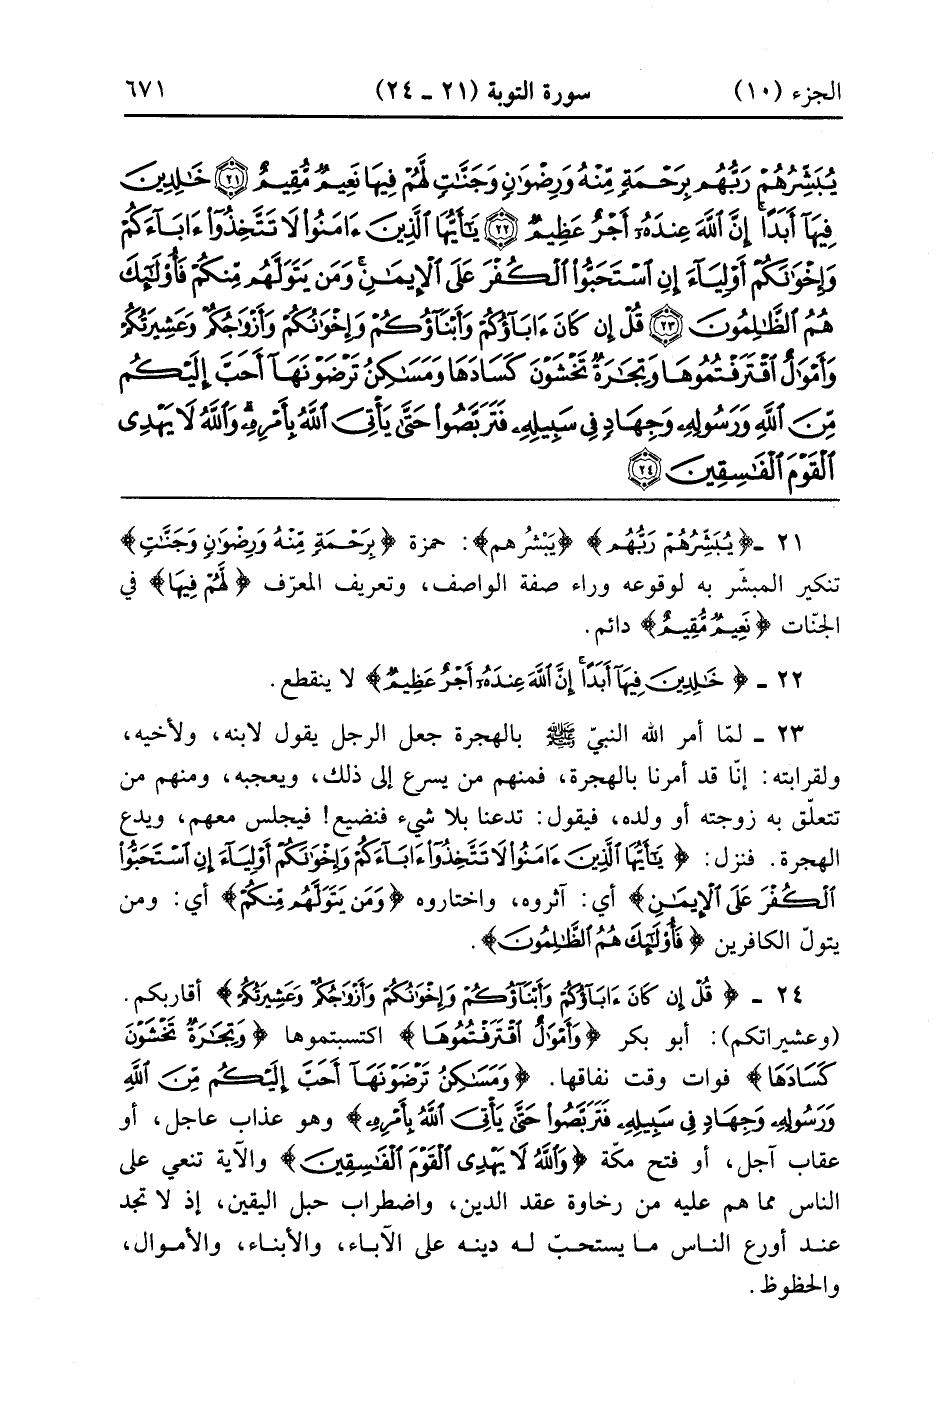 الجزء (١٠) سورة التوبة (٢١ ـ ٢٤) ٦٧١
يُبَشِّرُهُمْ رَبُّهُم بِرَحْمَةٍ مِّنْهُ وَرِضْوَٰنٍ وَجَنَّٰتٍ لَّهُمْ فِيهَا نَعِيمٌ مُّقِيمٌ ﴿٢١﴾ خَٰلِدِينَ
فِيهَآ أَبَدًا ۚ إِنَّ ٱللَّهَ عِندَهُۥٓ أَجْرٌ عَظِيمٌ ﴿٢٢﴾ يَٰٓأَيُّهَا ٱلَّذِينَ ءَامَنُوا۟ لَا تَتَّخِذُوٓا۟ ءَابَآءَكُمْ
وَإِخْوَٰنَكُمْ أَوْلِيَآءَ إِنِ ٱسْتَحَبُّوا۟ ٱلْكُفْرَ عَلَى ٱلْإِيمَٰنِ ۚ وَمَن يَتَوَلَّهُم مِّنكُمْ فَأُو۟لَٰٓئِكَ
هُمُ ٱلظَّٰلِمُونَ ﴿٢٣﴾ قُلْ إِن كَانَ ءَابَآؤُكُمْ وَأَبْنَآؤُكُمْ وَإِخْوَٰنُكُمْ وَأَزْوَٰجُكُمْ وَعَشِيرَتُكُمْ
وَأَمْوَٰلٌ ٱقْتَرَفْتُمُوهَا وَتِجَٰرَةٌ تَخْشَوْنَ كَسَادَهَا وَمَسَٰكِنُ تَرْضَوْنَهَآ أَحَبَّ إِلَيْكُم
مِّنَ ٱللَّهِ وَرَسُولِهِۦ وَجِهَادٍ فِى سَبِيلِهِۦ فَتَرَبَّصُوا۟ حَتَّىٰ يَأْتِىَ ٱللَّهُ بِأَمْرِهِۦ ۗ وَٱللَّهُ لَا يَهْدِى
ٱلْقَوْمَ ٱلْفَٰسِقِينَ ﴿٢٤﴾
٢١ ـ ﴿يُبَشِّرُهُمْ رَبُّهُم﴾ ﴿يَبْشُرهم﴾: حمزة ﴿بِرَحْمَةٍ مِّنْهُ وَرِضْوَٰنٍ وَجَنَّٰتٍ﴾
تنكير المبشّر به لوقوعه وراء صفة الواصف، وتعريف المعرّف ﴿لَّهُمْ فِيهَا﴾ في
الجنّات ﴿نَعِيمٌ مُّقِيمٌ﴾ دائم.
٢٢ ـ ﴿خَٰلِدِينَ فِيهَآ أَبَدًا ۚ إِنَّ ٱللَّهَ عِندَهُۥٓ أَجْرٌ عَظِيمٌ﴾ لا ينقطع.
٢٣ ـ لمّا أمر الله النبيّ ﷺ بالهجرة جعل الرجل يقول لابنه، ولأخيه،
ولقرابته: إنّا قد أمرنا بالهجرة، فمنهم من يسرع إلى ذلك، ويعجبه، ومنهم من
تتعلّق به زوجته أو ولده، فيقول: تدعنا بلا شيء فنضيع! فيجلس معهم، ويدع
الهجرة. فنزل: ﴿يَٰٓأَيُّهَا ٱلَّذِينَ ءَامَنُوا۟ لَا تَتَّخِذُوٓا۟ ءَابَآءَكُمْ وَإِخْوَٰنَكُمْ أَوْلِيَآءَ إِنِ ٱسْتَحَبُّوا۟
ٱلْكُفْرَ عَلَى ٱلْإِيمَٰنِ﴾ أي: آثروه، واختاروه ﴿وَمَن يَتَوَلَّهُم مِّنكُمْ﴾ أي: ومن
يتولّ الكافرين ﴿فَأُو۟لَٰٓئِكَ هُمُ ٱلظَّٰلِمُونَ﴾.
٢٤ ـ ﴿قُلْ إِن كَانَ ءَابَآؤُكُمْ وَأَبْنَآؤُكُمْ وَإِخْوَٰنُكُمْ وَأَزْوَٰجُكُمْ وَعَشِيرَتُكُمْ﴾ أقاربكم.
(وعشيراتكم): أبو بكر ﴿وَأَمْوَٰلٌ ٱقْتَرَفْتُمُوهَا﴾ اكتسبتموها ﴿وَتِجَٰرَةٌ تَخْشَوْنَ
كَسَادَهَا﴾ فوات وقت نفاقها. ﴿وَمَسَٰكِنُ تَرْضَوْنَهَآ أَحَبَّ إِلَيْكُم مِّنَ ٱللَّهِ
وَرَسُولِهِۦ وَجِهَادٍ فِى سَبِيلِهِۦ فَتَرَبَّصُوا۟ حَتَّىٰ يَأْتِىَ ٱللَّهُ بِأَمْرِهِۦ﴾ وهو عذاب عاجل، أو
عقاب آجل، أو فتح مكّة ﴿وَٱللَّهُ لَا يَهْدِى ٱلْقَوْمَ ٱلْفَٰسِقِينَ﴾ والآية تنعي على
الناس مما هم عليه من رخاوة عقد الدين، واضطراب حبل اليقين، إذ لا تجد
عند أورع الناس ما يستحبّ له دينه على الآباء، والأبناء، والأموال،
والحظوظ.